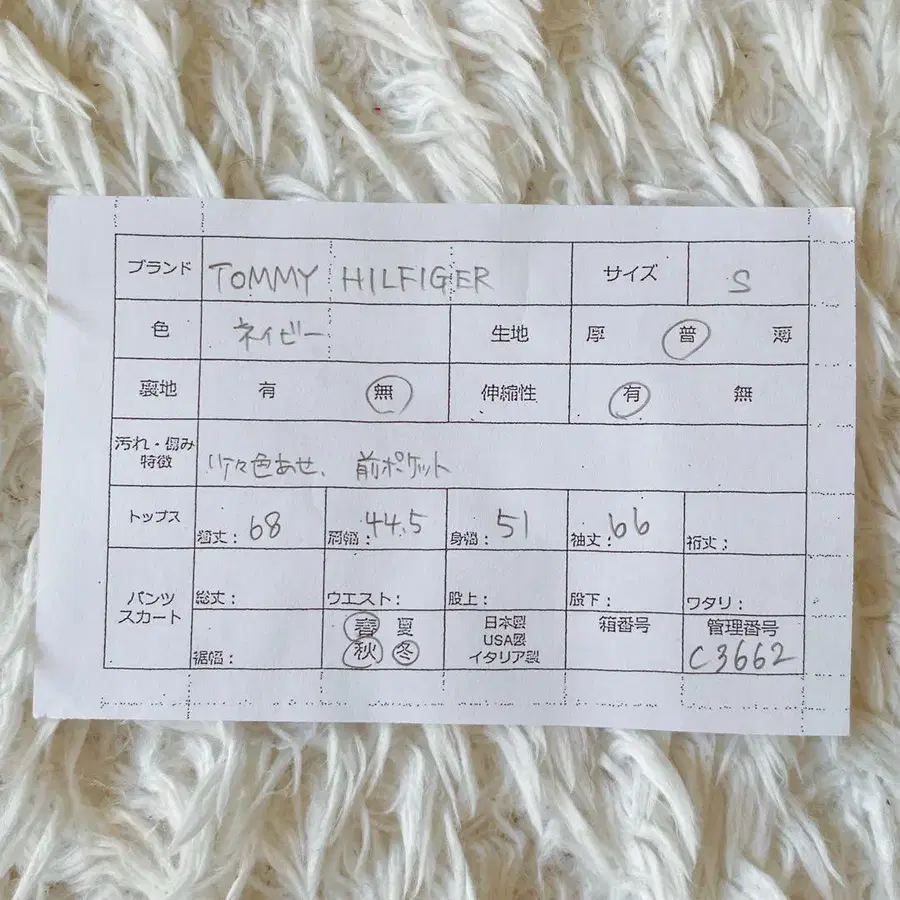 ブランド TOMMY HILFIGER サイズ S
色 ネイビー 生地 厚 普 薄
裏地 有 無 伸縮性 有 無
汚れ・傷み
特徴 少々色あせ、前ポケット
トップス 着丈:68 肩幅:44.5 身幅:51 袖丈:66 裄丈:
パンツ
スカート 総丈: ウエスト: 股上: 股下: ワタリ:
裾幅: 春 夏 秋 冬 日本製
USA製
イタリア製 箱番号 管理番号
C3662